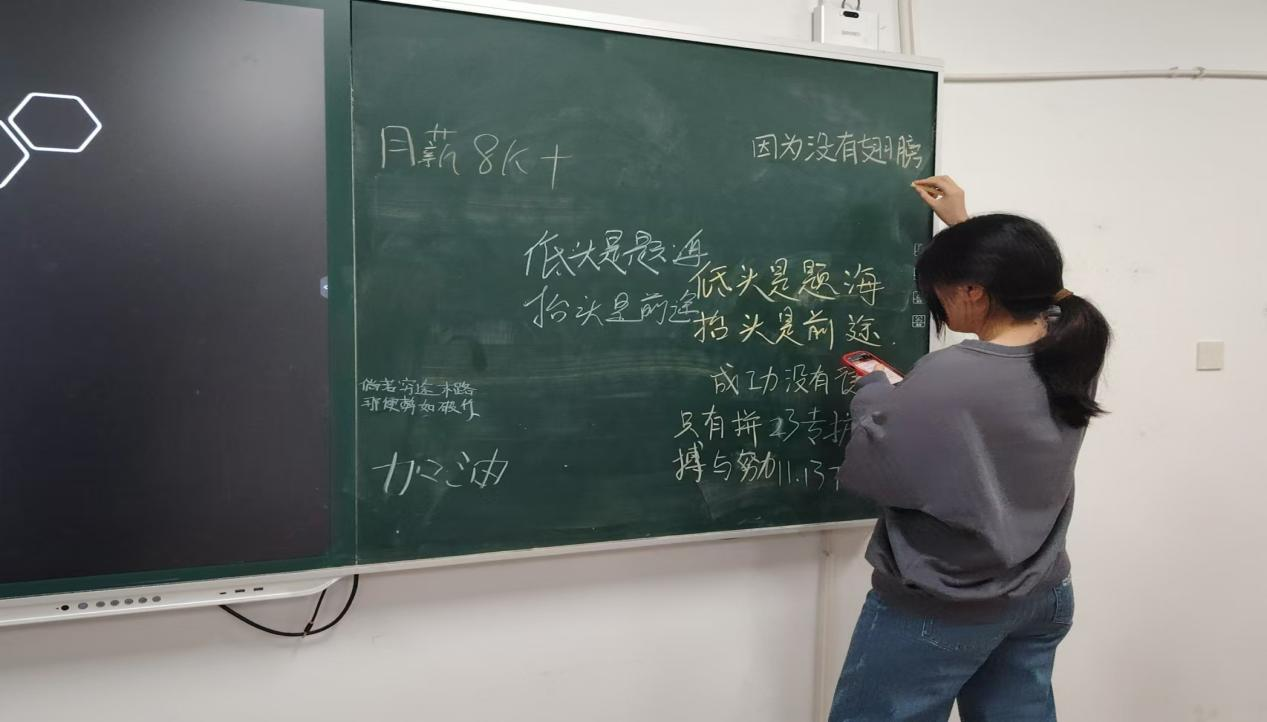 月薪8K+
因为没有翅膀
低头是题海
抬头是前途
低头是题海
抬头是前途.
成功没有
只有拼
搏与努力
23专
11.13
倘若穷途末路
那便势如破竹
加油